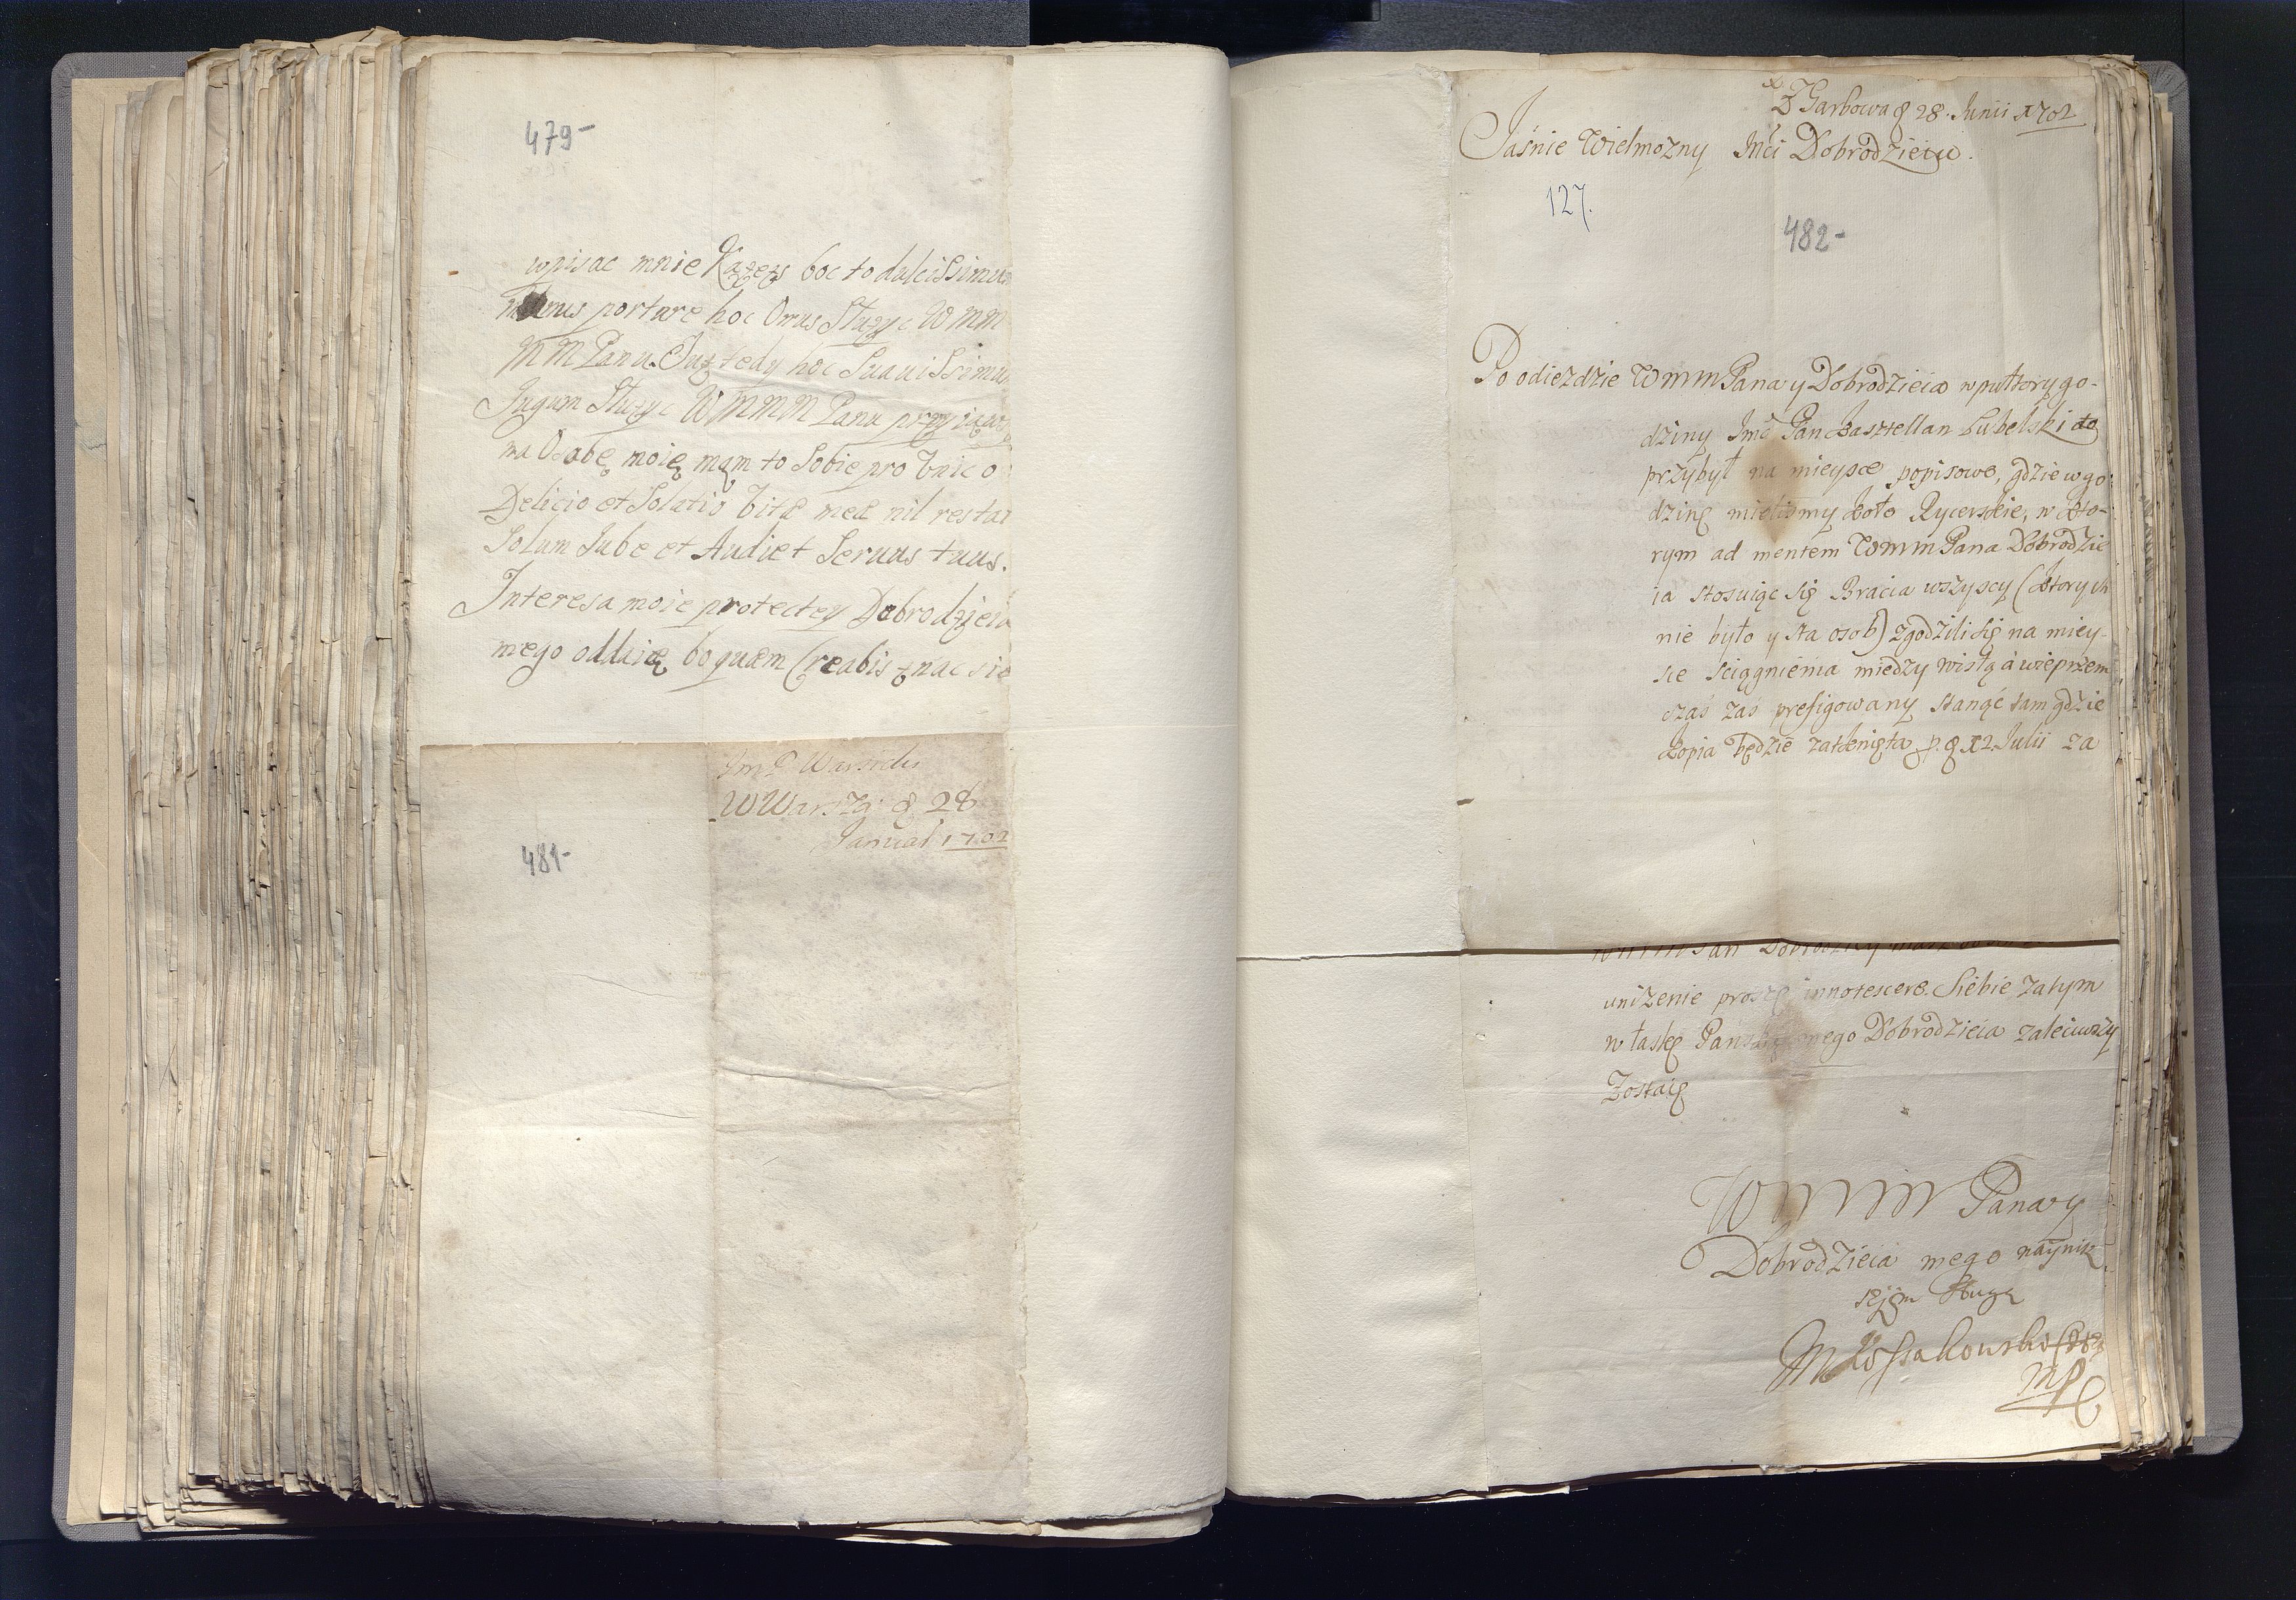 479-
wpisac mnie Każesz boc to dulcissimum
munus portare hoc Onus Służyc WMM
MM Panu. Już tedy hoc Suauissimum
Jugum Służyc WMMM Panu przyiąwszy
na Osobę moię mąm to Sobie pro Vnico
Delicio et Solatio Vitæ meæ nil restat
Solum Jube et Audiet Seruus tuus.
Interesa moie protectey Dobrodzieia
mego oddaię bo quem Creabis znac sie
Jm P Warsicki
W Warsza: d 28
Januar 1702
481-
Z Garbowa d 28. Junii 1702
Jaśnie Wielmozny Mći Dobrodzieiu.
127.
482-
Po odiezdzie WMM Pana y Dobrodzieia w pułtory go-
dziny Jmć Pan Kasztellan Lubelski
przybył na mieysce popisowe, gdzie w go-
dzinę mieliśmy Koło Rycerskie, w Kto-
rym ad mentem WMM Pana Dobrodzie
ia stosuiąc się Bracia wszyscy (Ktorych
nie było y sta osob) zgodzili się na miey-
sce sciągnienia między wisłą á wieprzem
czas zaś prefigowany stanąć tam gdzie
Kopia będzie zatkniętą p. d 12 Julii za
unizenie proszę innotescere. Siebie zatym
w łaskę Panską mego Dobrodzieia zaleciwszy
Zostaię
WMM Pana y
Dobrodzieia mego nayniz
szym Sługą
MKossakowski
MP